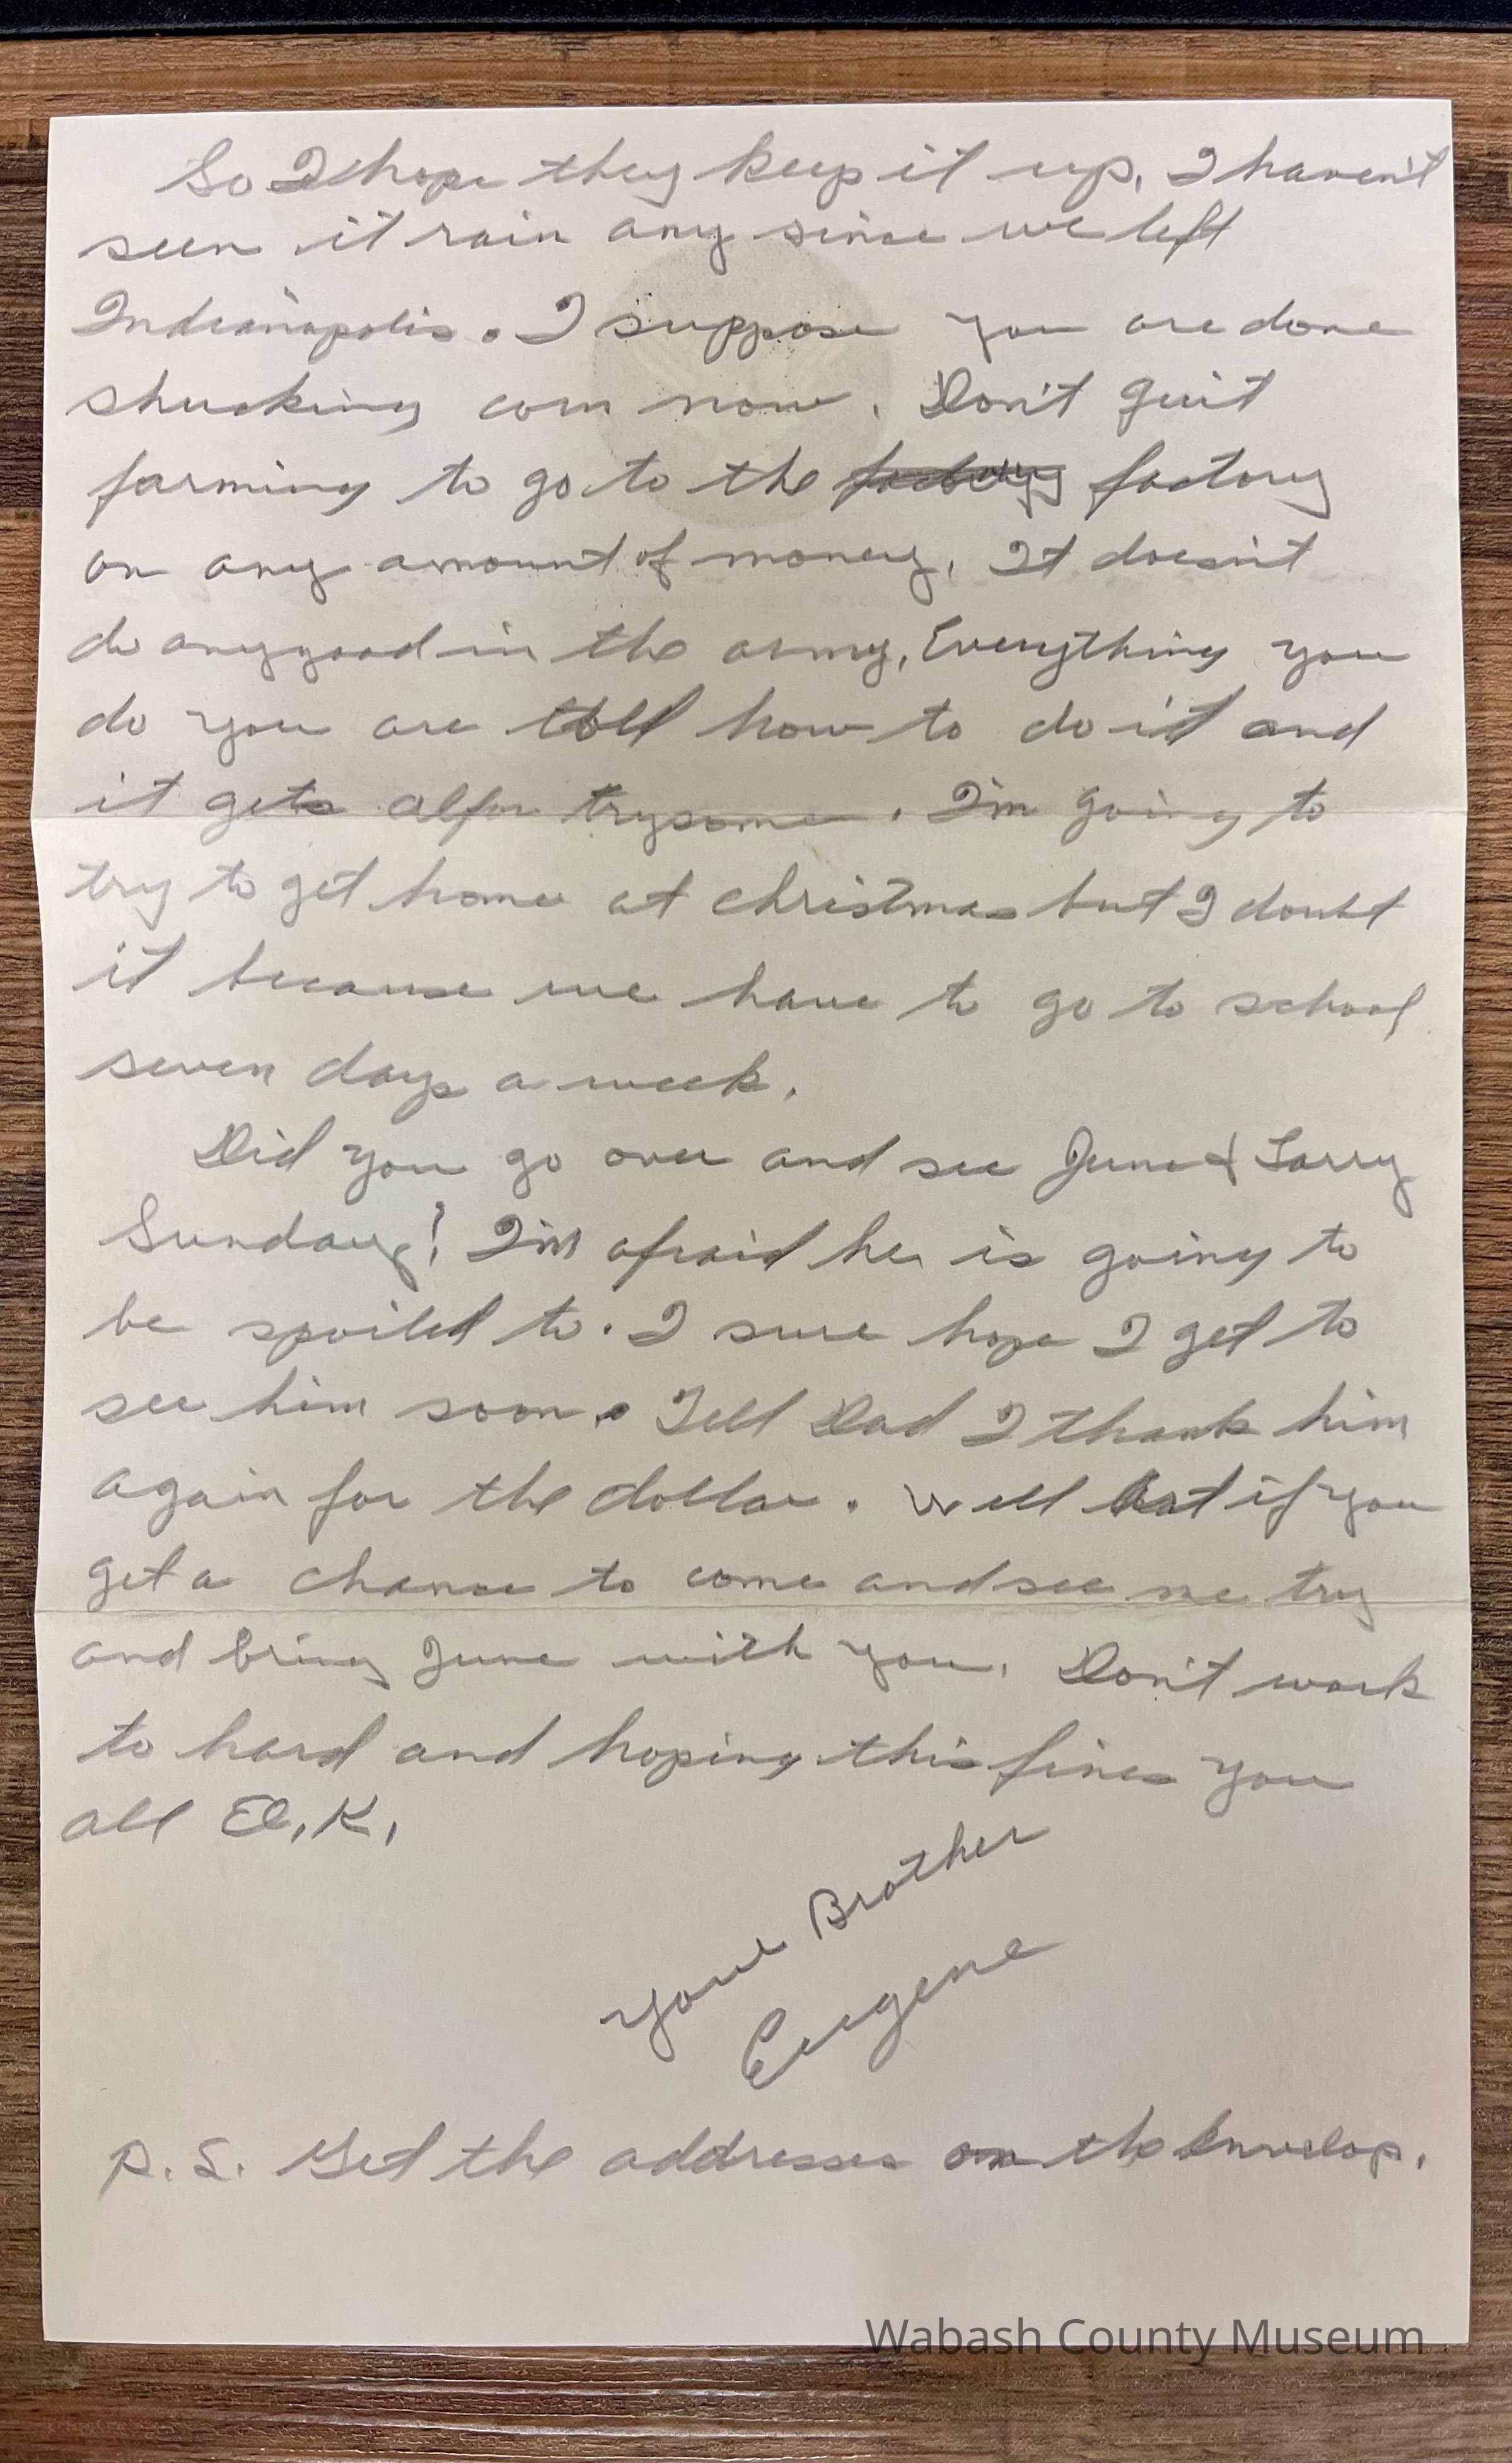 So I hope they keep it up, I haven't
seen it rain any since we left
Indianapolis. I suppose you are done
shucking corn now. Don't quit
farming to go to the factory
on any amount of money, It doesn't
do any good in the army, Everything you
do you are told how to do it and
it gets trysome. I'm going to
try to get home at christmas but I doubt
it because we have to go to school
seven days a week.
Did you go over and see June & Larry
Sunday? I'm afraid he is going to
be spoiled to. I sure hope I get to
see him soon. Tell Dad I thank him
again for the dollar. Well if you
get a chance to come and see me try
and bring June with you. Don't work
to hard and hoping this fines you
all O.K.
Your Brother
Eugene
P.S. Get the addresses on the Envelop.
Wabash County Museum